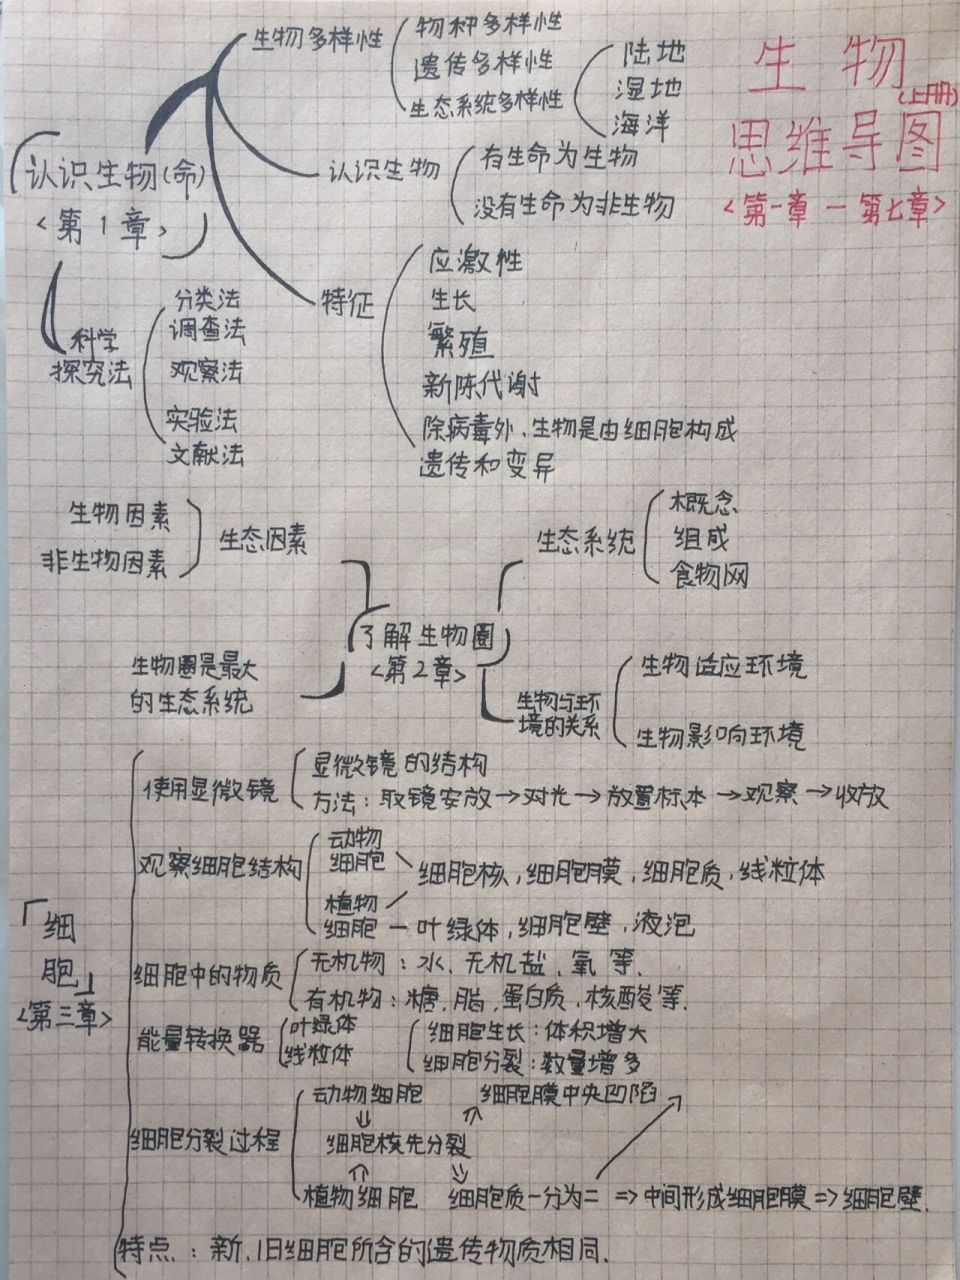 生物
(上册)
思维导图
<第一章 — 第七章>
认识生物(命)
<第1章>
生物多样性
物种多样性
遗传多样性
生态系统多样性
陆地
湿地
海洋
认识生物
有生命为生物
没有生命为非生物
特征
应激性
生长
繁殖
新陈代谢
除病毒外、生物是由细胞构成
遗传和变异
科学
探究法
分类法
调查法
观察法
实验法
文献法
了解生物圈
<第2章>
生物因素
非生物因素
生态因素
生态系统
概念
组成
食物网
生物圈是最大
的生态系统
生物与环
境的关系
生物适应环境
生物影响环境
「细
胞」
<第三章>
使用显微镜
显微镜的结构
方法：取镜安放→对光→放置标本→观察→收放
观察细胞结构
动物
细胞
细胞核，细胞膜，细胞质，线粒体
植物
细胞 — 叶绿体，细胞壁，液泡
细胞中的物质
无机物：水、无机盐、氧等.
有机物：糖，脂，蛋白质，核酸等.
能量转换器
叶绿体
线粒体
细胞生长：体积增大
细胞分裂：数量增多
细胞分裂过程
动物细胞
细胞膜中央凹陷
⇓
⇑
细胞核先分裂
⇑
⇓
植物细胞
细胞质一分为二 ⇒中间形成细胞膜⇒细胞壁.
特点：新、旧细胞所含的遗传物质相同.